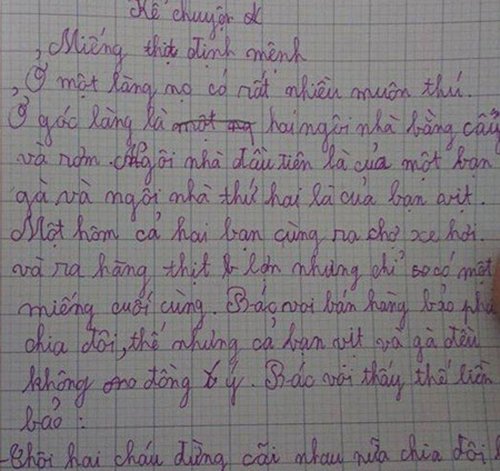 Kể chuyện
Miếng thịt định mệnh
Ở một làng nọ có rất nhiều muôn thú.
Ở góc làng là một ng hai ngôi nhà bằng cây
và rơm. Ngôi nhà đầu tiên là của một bạn
gà và ngôi nhà thứ hai là của bạn vịt.
Một hôm cả hai bạn cùng ra chợ xe hơi
và ra hàng thịt lơn nhưng chỉ có một
miếng cuối cùng. Bác voi bán hàng bảo
chia đôi, thế nhưng cả bạn vịt và gà đều
không đồng ý. Bác voi thấy thế liền
bảo:
-Thôi hai cháu đừng cãi nhau nữa chia đôi